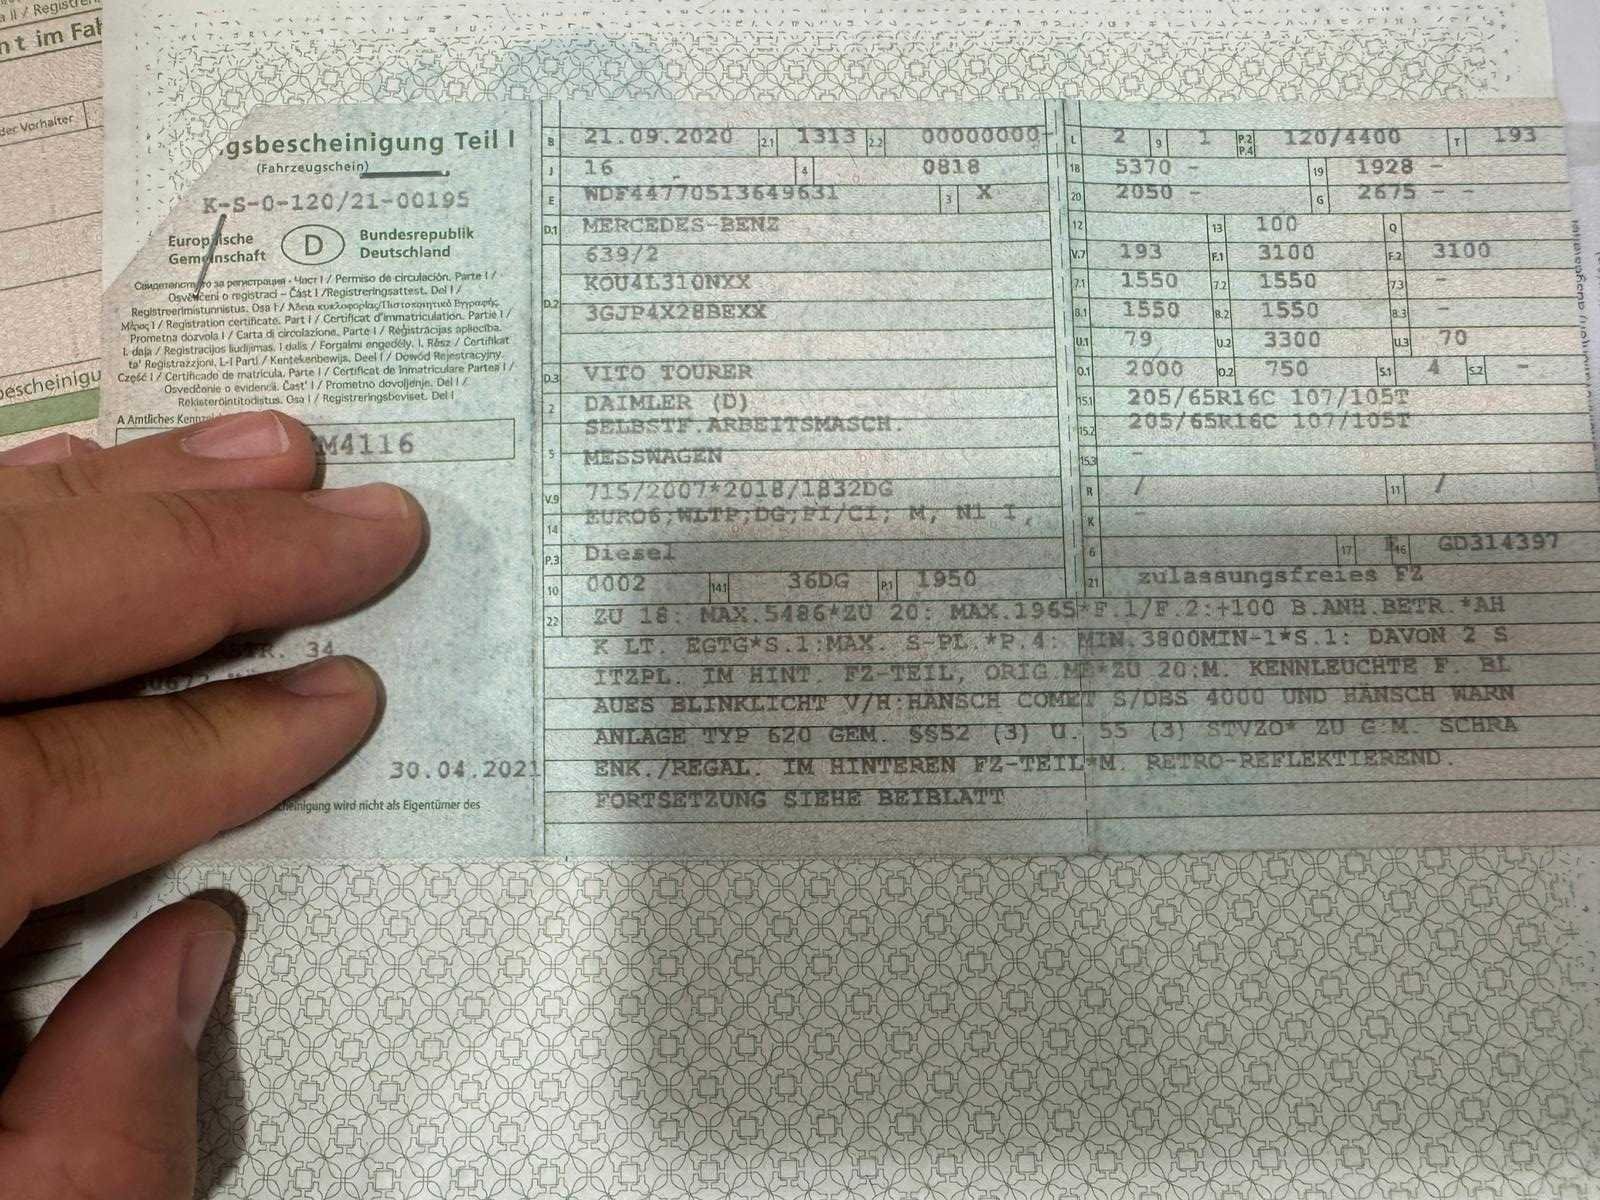 a II / Registrer
nt im Fah
der Vorhalter
bescheinigu
gsbescheinigung Teil I
(Fahrzeugschein)
K-S-0-120/21-00195
Europäische Gemeinschaft
D
Bundesrepublik Deutschland
Свидетелство за регистрация - Част I / Permiso de circulación. Parte I /
Osvědčení o registraci – Část I /Registreringsattest. Del I /
Registreerimistunnistus. Osa I / Άδεια κυκλοφορίας/Πιστοποιητικό Εγγραφής
Μέρος I / Registration certificate. Part I / Certificat d'immatriculation. Partie I /
Prometna dozvola I / Carta di circolazione. Parte I / Reģistrācijas apliecība.
I. daļa / Registracijos liudijimas. I dalis / Forgalmi engedély. I. Rész / Ċertifikat
ta' Reġistrazzjoni. L-I Parti / Kentekenbewijs. Deel I / Dowód Rejestracyjny.
Część I / Certificado de matrícula. Parte I / Certificat de înmatriculare Partea I /
Osvedčenie o evidencii. Časť I / Prometno dovoljenje. Del I /
Rekisteröintitodistus. Osa I / Registreringsbeviset. Del I
A Amtliches
M4116
STR. 34
30.04.2021
cheinigung wird nicht als Eigentümer des
B 21.09.2020 2.1 1313 2.2 00000000-
J 16 4 0818
E WDF44770513649631 3 X
D.1 MERCEDES-BENZ
639/2
KOU4L310NXX
D.2 3GJP4X28BEXX
D.3 VITO TOURER
2 DAIMLER (D)
SELBSTF.ARBEITSMASCH.
5 MESSWAGEN
V.9 715/2007*2018/1832DG
14 EURO6;WLTP;DG;PI/CI; M, N1 I,
P.3 Diesel
10 0002 14.1 36DG P.1 1950
L 2 9 1 P.2 P.4 120/4400 T 193
18 5370 - 19 1928 -
20 2050 - G 2675 - -
12 13 100 Q
V.7 193 F.1 3100 F.2 3100
7.1 1550 7.2 1550 7.3 -
8.1 1550 8.2 1550 8.3 -
U.1 79 U.2 3300 U.3 70
O.1 2000 O.2 750 S.1 4 S.2 -
15.1 205/65R16C 107/105T
15.2 205/65R16C 107/105T
15.3 -
R / 11 /
K -
6 17 16 GD314397
21 zulassungsfreies FZ
22 ZU 18: MAX.5486*ZU 20: MAX.1965*F.1/F.2:+100 B.ANH.BETR.*AH
K LT. EGTG*S.1:MAX. S-PL.*P.4: MIN.3800MIN-1*S.1: DAVON 2 S
ITZPL. IM HINT. FZ-TEIL, ORIG.MB*ZU 20:M. KENNLEUCHTE F. BL
AUES BLINKLICHT V/H:HÄNSCH COMET S/DBS 4000 UND HÄNSCH WARN
ANLAGE TYP 620 GEM. §§52 (3) U. 55 (3) STVZO* ZU G:M. SCHRA
ENK./REGAL. IM HINTEREN FZ-TEIL*M. RETRO-REFLEKTIEREND.
FORTSETZUNG SIEHE BEIBLATT